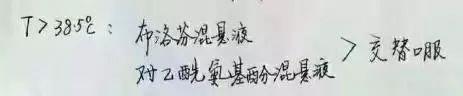 T>38.5℃: 布洛芬混悬液
对乙酰氨基酚混悬液 > 交替口服